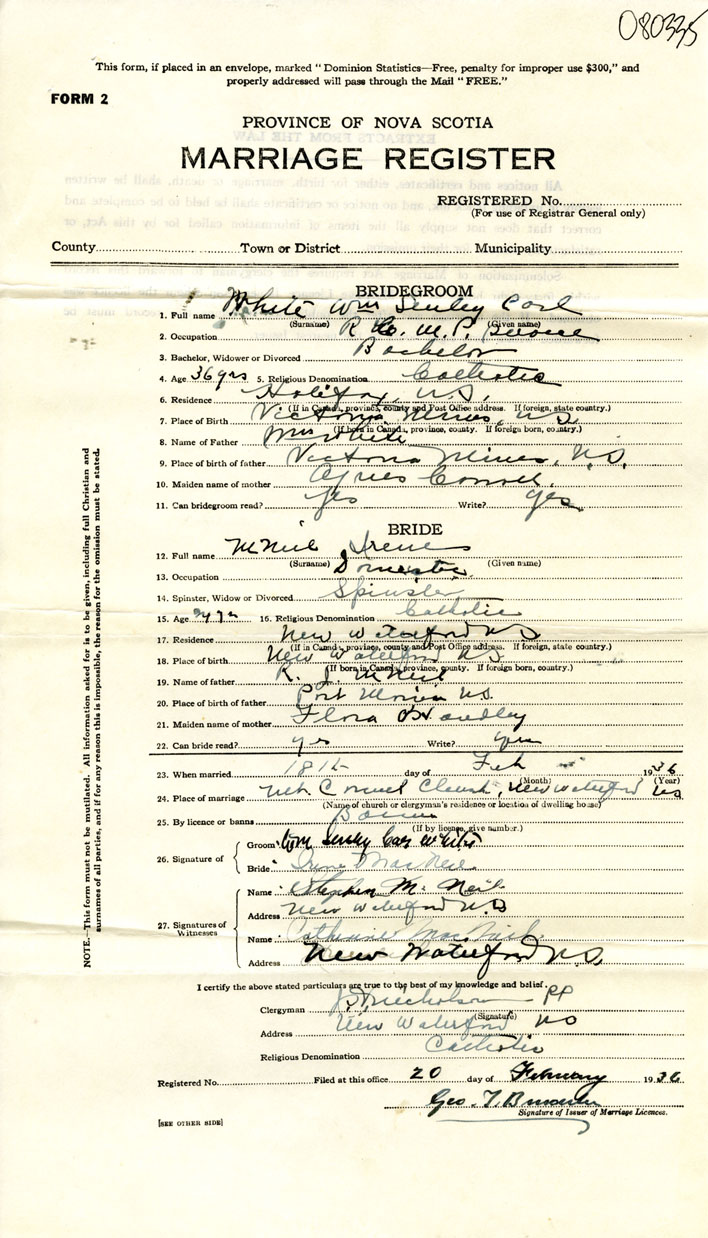 080335
This form, if placed in an envelope, marked "Dominion Statistics—Free, penalty for improper use $300," and
properly addressed will pass through the Mail "FREE."
FORM 2
PROVINCE OF NOVA SCOTIA
MARRIAGE REGISTER
REGISTERED No.
(For use of Registrar General only)
County Town or District Municipality
BRIDEGROOM
1. Full name White Wm Senley Carl
(Surname) (Given name)
2. Occupation R. C. M. P.
3. Bachelor, Widower or Divorced Bachelor
4. Age 36 yrs 5. Religious Denomination Catholic
6. Residence Halifax, N.S.
(If in Canada, province, county and Post Office address. If foreign, state country.)
7. Place of Birth Victoria Mines, N.S.
(If born in Canada, province, county. If foreign born, country.)
8. Name of Father Wm White
9. Place of birth of father Victoria Mines, N.S.
10. Maiden name of mother Agnes
11. Can bridegroom read? yes Write? yes
BRIDE
12. Full name McNeil Irene
(Surname) (Given name)
13. Occupation Domestic
14. Spinster, Widow or Divorced Spinster
15. Age 16. Religious Denomination Catholic
17. Residence New Waterford NS
(If in Canada, province, county and Post Office address. If foreign, state country.)
18. Place of birth New Waterford N.S.
(If born in Canada, province, county. If foreign born, country.)
19. Name of father R. J. McNeil
20. Place of birth of father Port Morien N.S.
21. Maiden name of mother Flora
22. Can bride read? yes Write? yes
23. When married 18th day of Feb 1936
(Month) (Year)
24. Place of marriage Mt. Carmel Church, New Waterford NS
(Name of church or clergyman's residence or location of dwelling house)
25. By licence or banns Banns
(If by license, give number.)
26. Signature of
Groom Wm Senley Carl White
Bride Irene MacNeil
27. Signatures of Witnesses
Name Stephen McNeil
Address New Waterford N.S
Name Catherine MacNeil
Address New Waterford N.S.
I certify the above stated particulars are true to the best of my knowledge and belief.
Clergyman Nicholson PP
(Signature)
Address New Waterford NS
Religious Denomination Catholic
Registered No. Filed at this office 20 day of February 1936
Geo. T.
Signature of Issuer of Marriage Licences.
[SEE OTHER SIDE]
NOTE.—This form must not be mutilated. All information asked for is to be given, including full Christian and
surnames of all parties, and if for any reason this is impossible, the reason for the omission must be stated.